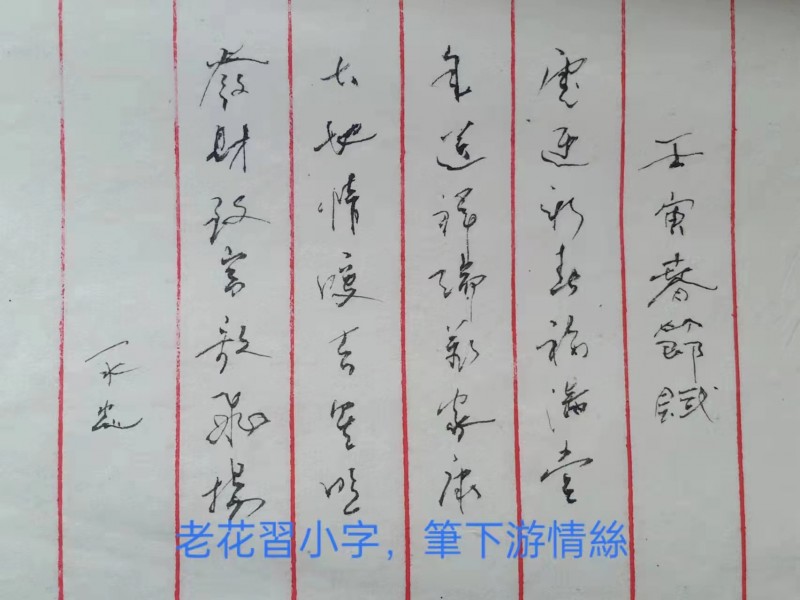 壬寅春節賦
虎迎新春福滿堂
年送祥瑞萬家康
大地情暖吉星
發財致富歌飛揚
一水
老花習小字，筆下游情絲